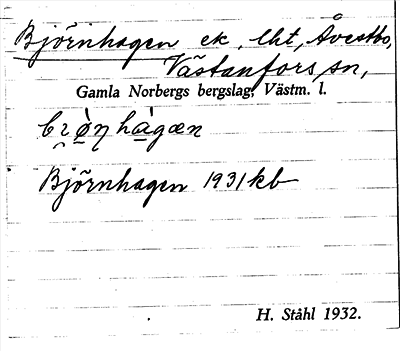 Björnhagen ek, lht, Åvestbo,
Västanfors sn,
Gamla Norbergs bergslag, Västm. l.
bɾø̀ŋhàgæn
Björnhagen 1931 kb
H. Ståhl 1932.